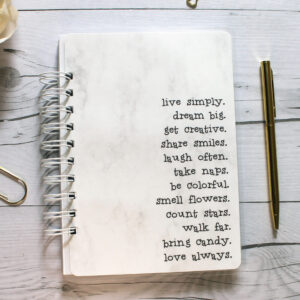 live simply.
dream big.
get creative.
share smiles.
laugh often.
take naps.
be colorful.
smell flowers.
count stars.
walk far.
bring candy.
love always.